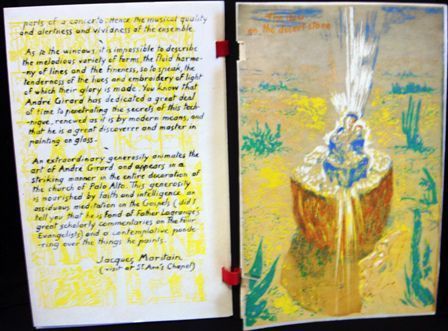 parts of a concerto. Hence the musical quality
and alertness and vividness of the ensemble.
As to the windows, it is impossible to describe
the melodious variety of forms, the fluid harmo-
ny of lines and the fineness, so to speak, the
tenderness of the hues and embroidery of light
of which their glory is made. You know that
André Girard has dedicated a great deal
of time to penetrating the secrets of this tech-
nique, renewed as it is by modern means, and
that he is a great discoverer and master in
painting on glass.
An extraordinary generosity animates the
art of André Girard and appears in a
striking manner in the entire decoration of
the church of Palo Alto. This generosity
is nourished by faith and intelligence an
assiduous meditation on the Gospels (did I
tell you that he is fond of Father Lagrange's
great scholarly commentaries on the Four
Evangelists) and a contemplative ponde-
ring over the things he paints.
Jacques Maritain
(visit at St. Ann's Chapel)
on the desert stone